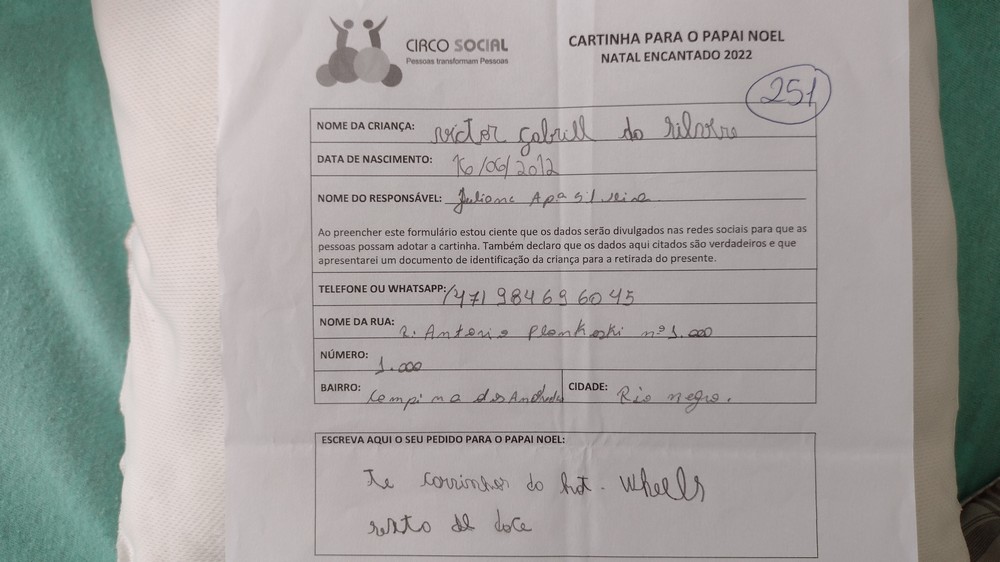 CIRCO SOCIAL
Pessoas transformam Pessoas
CARTINHA PARA O PAPAI NOEL
NATAL ENCANTADO 2022
251
NOME DA CRIANÇA: victor gabrill do
DATA DE NASCIMENTO: 16/06/2012
NOME DO RESPONSÁVEL: Juliane Apª Silveira
Ao preencher este formulário estou ciente que os dados serão divulgados nas redes sociais para que as
pessoas possam adotar a cartinha. Também declaro que os dados aqui citados são verdadeiros e que
apresentarei um documento de identificação da criança para a retirada do presente.
TELEFONE OU WHATSAPP: (47) 984696045
NOME DA RUA: R. Antonio Plonkoski nº 1.000
NÚMERO: 1.000
BAIRRO: Campina dos Andrades CIDADE: Rio negro.
ESCREVA AQUI O SEU PEDIDO PARA O PAPAI NOEL:
carrinhos do hot. Wheels
doce